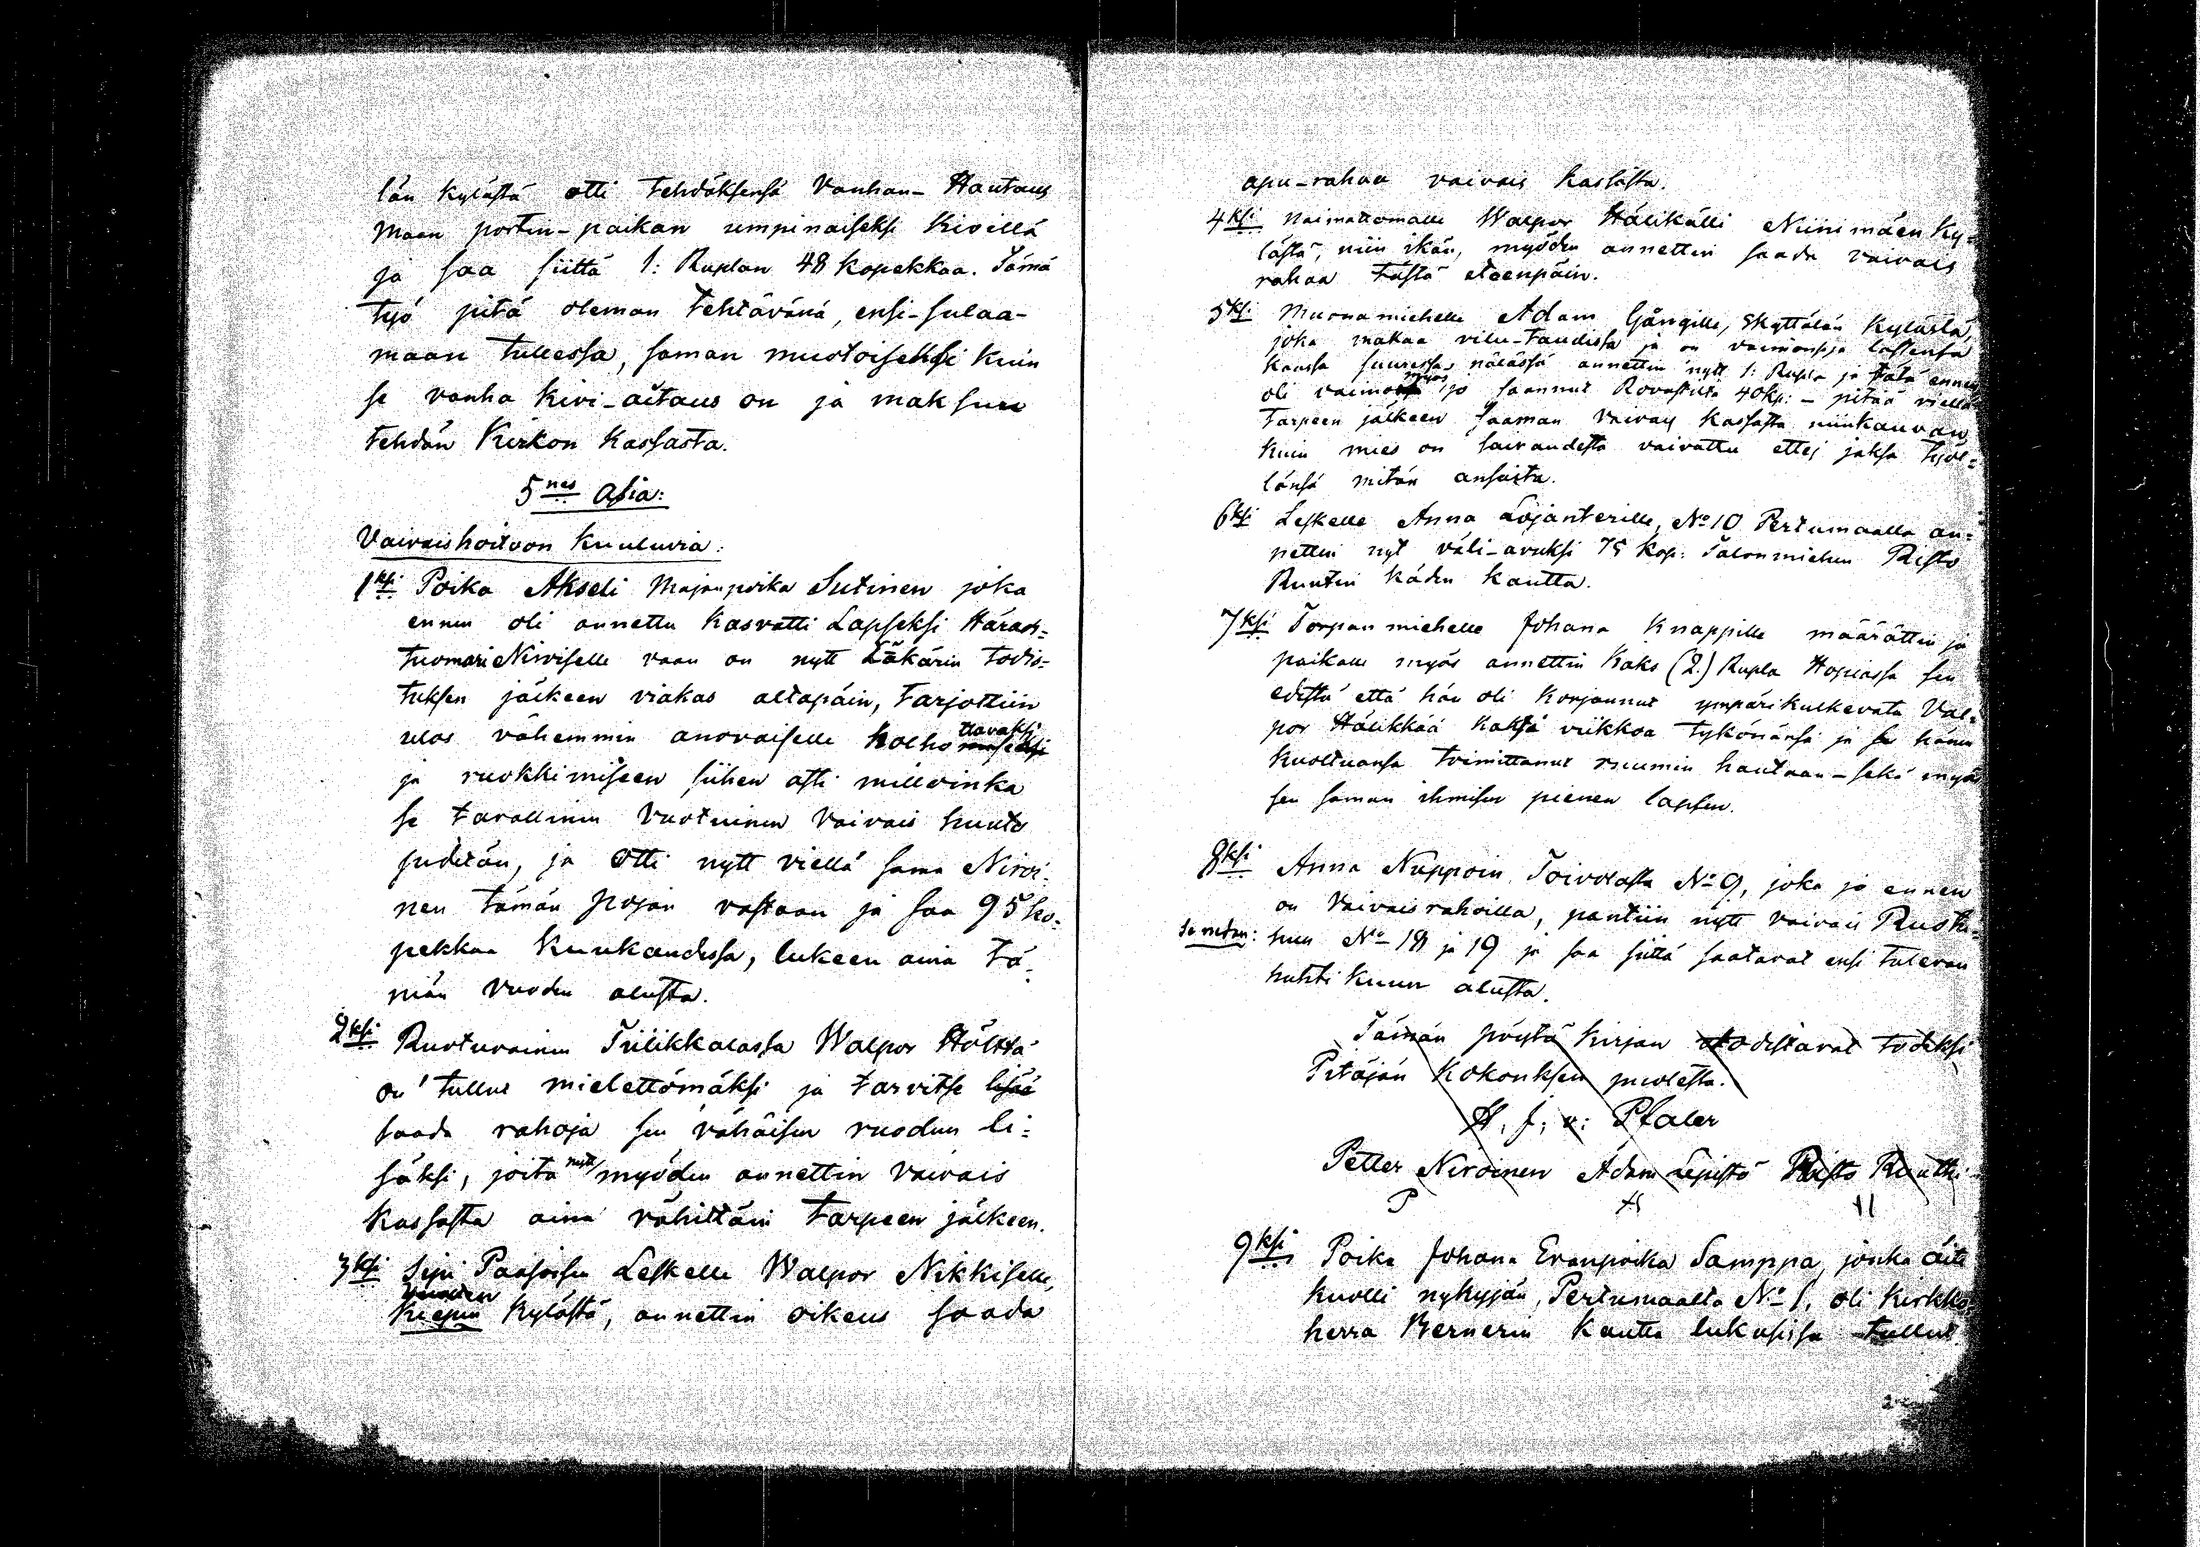 län kylästä otti tehdäksensä Vanhan-Hautaus
maan portin-paikan umpinaiseksi Kivillä
ja saa siittä 1: Ruplan 48 kopekkaa. Tämä
työ pitä oleman tehtävänä, ensi-sulaa-
maan tullessa, saman muotoiseksi kuin
se vanha kivi-aitaus on ja maksuu
tehdän Kirkon kassasta.
5nes asia:
Vaivaishoitoon kuuluvia:
1ksi Poika Akseli Majanpoika Sutinen joka
ennen oli annettu Kasvatti Lapseksi Härads=
tuomari Niroiselle vaan on nytt Läkärin todis-
tuksen jälkeen viakas altapäin, tarjottiin
ulos vähemmin anovaiselle holhottavaksi
ja ruokkimiseen siihen asti milloinka
se tavallinen Vuotuinen Vaivais huuto
pidetän, ja Otti nytt viellä sama Niroi-
nen tämän pojan vastaan ja saa 95 ko-
pekkaa Kuukaudessa, lukeen aina tä-
män vuoden alusta.
2ksi Ruotuvainen Tiilikkalassa Walpor Hölttä
on tullut mielettömäksi ja tarvitse lisää
saada rahoja sen vähäisen ruodun li=
säksi, joita nytt myöden annettin vaivais
Kassasta aina vähittäin tarpeen jälkeen.
3ksi Sipi Paasoisen Leskelle Walpor Nikkiselle,
Kylästä, annettin oikeus saada
apu-rahaa vaivais kassasta.
4ksi Naimattomalle Walpor Hälikälli Niinimäen ky=
lästä, niin ikän, myöden annettin saada vaivais
rahaa tästä eteenpäin.
5ksi Muonamiehelle Adam Gångille, Skyttälän kylästä,
joka makaa vilu-taudissa ja on vaimonsa ja lastensa
kanssa suuressa nälässä annettin nytt 1: Rupla ja tätä ennen
oli vaimo myös jo saannut Rovastilta 40 kp: - pitää viellä
tarpeen jälkeen saaman vaivais kassasta niinkauvan
kuin mies on sairaudesta vaivattu ettei jaksa työl=
länsä mitän ansaita.
6ksi Leskelle Anna Lojanterille, No 10 Pertumaalla an=
nettin nyt väli-avuksi 75 kop: Talonmiehen Risto
Ruutin käden kautta.
7ksi Torpan miehelle Johana Knappille määrättin ja
paikalla myös annettin kaks (2.) Rupla Hopiassa sen
edestä että hän oli korjannut ympärikulkevata Val=
por Hälikkää kaksi viikkoa tykönänsä ja hänen
kuoltuansa toimittanut ruumin hautaan - sekä myös
sen saman ihmisen pienen lapsen.
8ksi Anna Nuppoin Toivolasta No 9, joka jo ennen
on vaivaisrahoilla, pantiin nytt vaivais Rustu=
huu No 18 ja 19 ja saa siitä saatavat ensi tulevan
huhti kuun alusta.
Tämän pöytä kirjan todistavat todeksi
Pitäjän Kokouksen puolesta.
H. J. v: Pfaler
Petter Niroinen Adam Lepistö Risto Ruutti
9ksi Poika Johana Evanpoika Samppa, jonka äiti
kuolli nykyjän, Pertumaalta No 1, oli kirkko-
herra Bernerin kautta lukusissa tullut